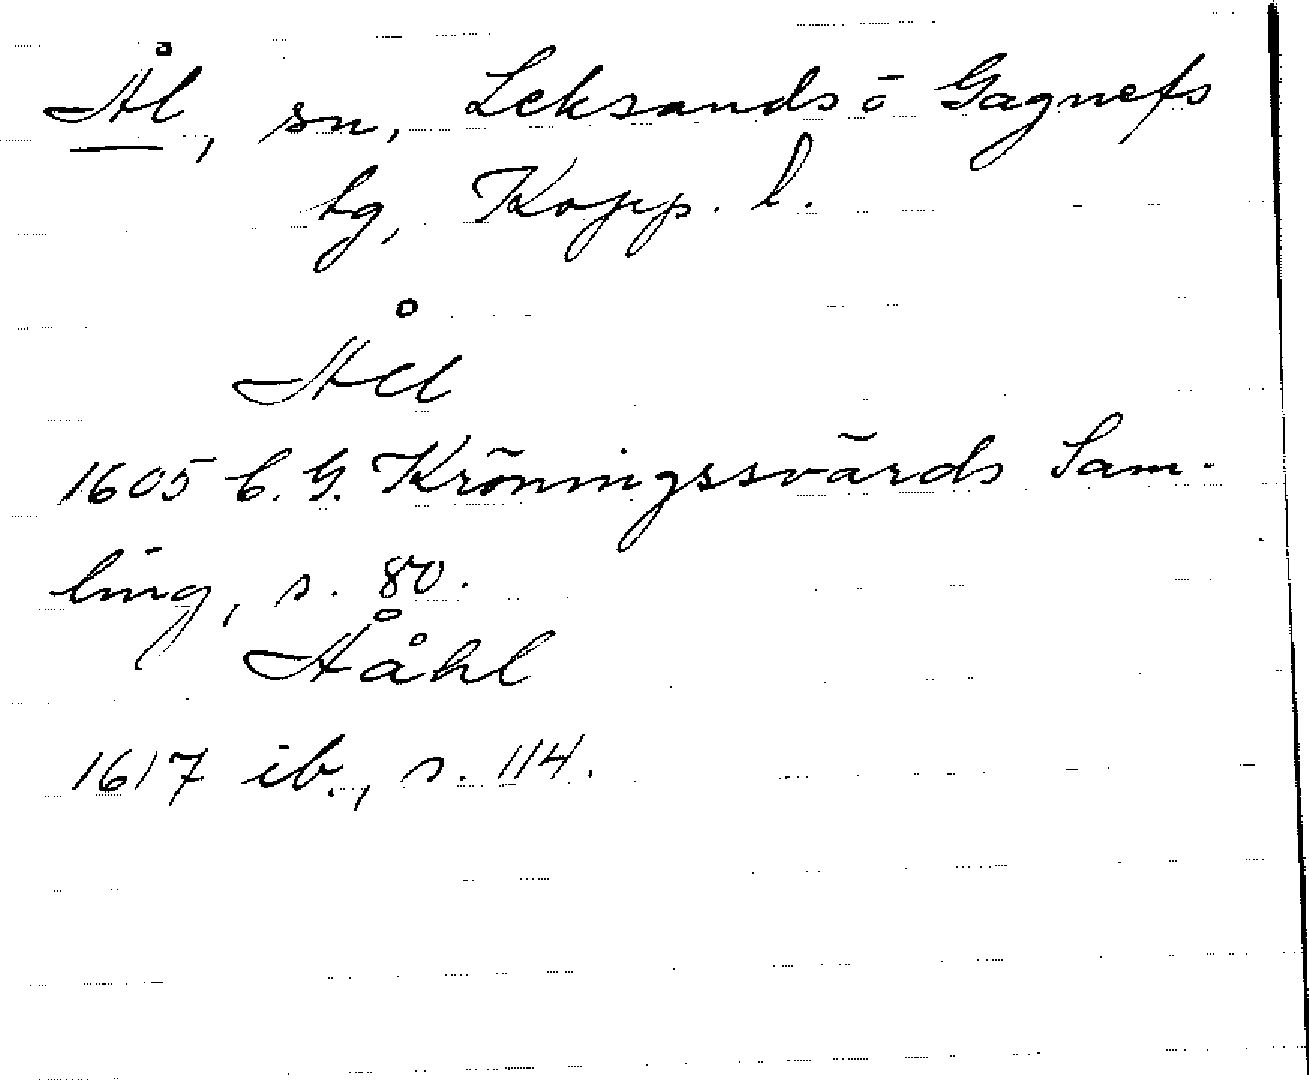 Ål, sn, Leksands o Gagnefs
tg, Kopp. l.
Åll
1605 C. G. Kröningssvärds Sam-
ling, s. 80.
Ååhl
1617 ib., s. 114.